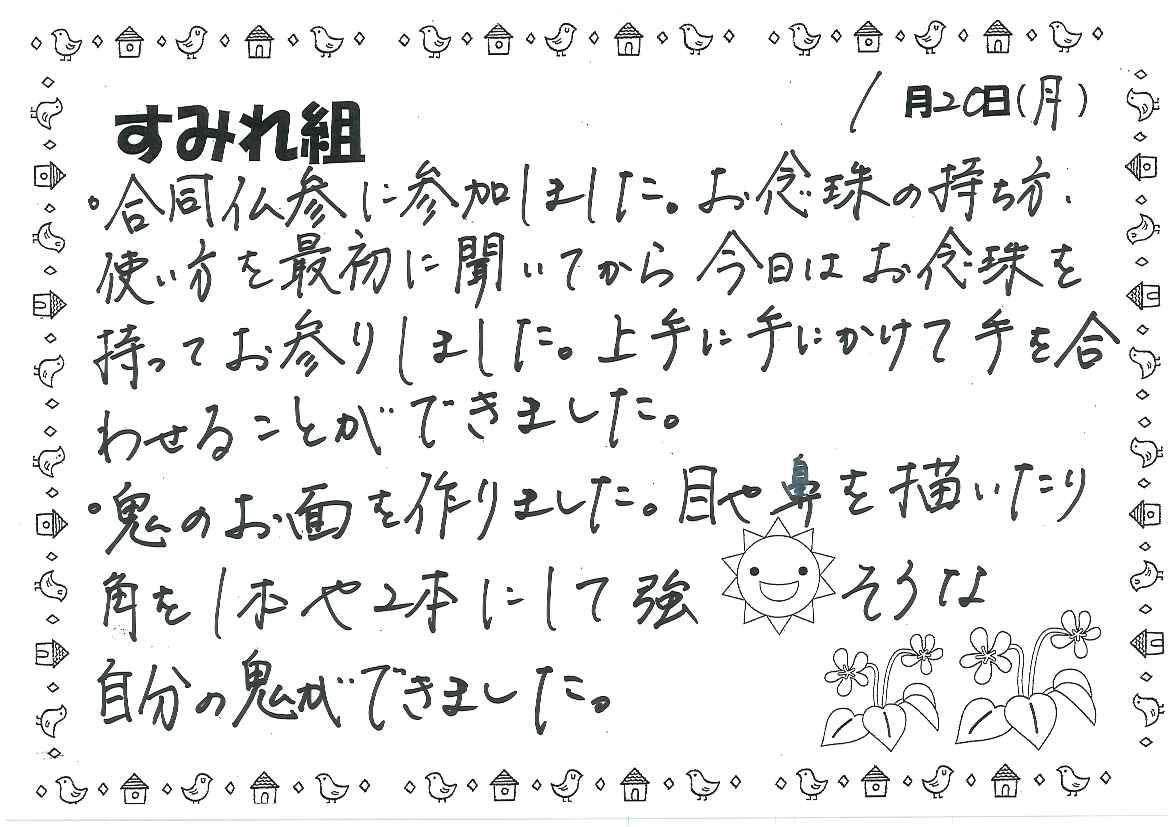 1月20日(月)
すみれ組
・合同仏参に参加しました。お念珠の持ち方、
使い方を最初に聞いてから今日はお念珠を
持ってお参りしました。上手に手にかけて手を合
わせることができました。
・鬼のお面を作りました。目や鼻を描いたり
角を1本や2本にして強そうな
自分の鬼ができました。